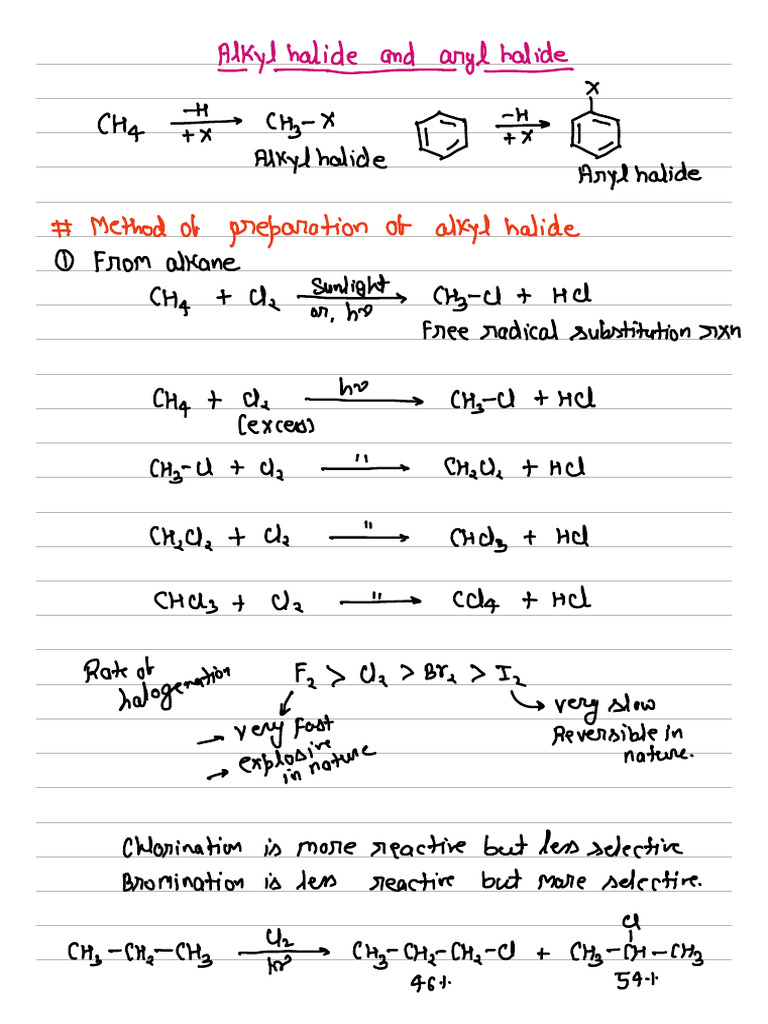 Alkyl halide and aryl halide
CH4 —H +X → CH3–X —H +X → X
Alkyl halide Aryl halide
# Method of preparation of alkyl halide
① From alkane
CH4 + Cl2 Sunlight or, hν → CH3–Cl + HCl
Free radical substitution rxn
CH4 + Cl2 hν → CH3–Cl + HCl
(excess)
CH3–Cl + Cl2 " → CH2Cl2 + HCl
CH2Cl2 + Cl2 " → CHCl3 + HCl
CHCl3 + Cl2 " → CCl4 + HCl
Rate of halogenation F2 > Cl2 > Br2 > I2
→ very fast
→ explosive in nature
→ very slow
Reversible in nature.
Chlorination is more reactive but less selective
Bromination is less reactive but more selective.
Cl
CH3–CH2–CH3 Cl2 hν → CH3–CH2–CH2–Cl + CH3–CH–CH3
46% 54%